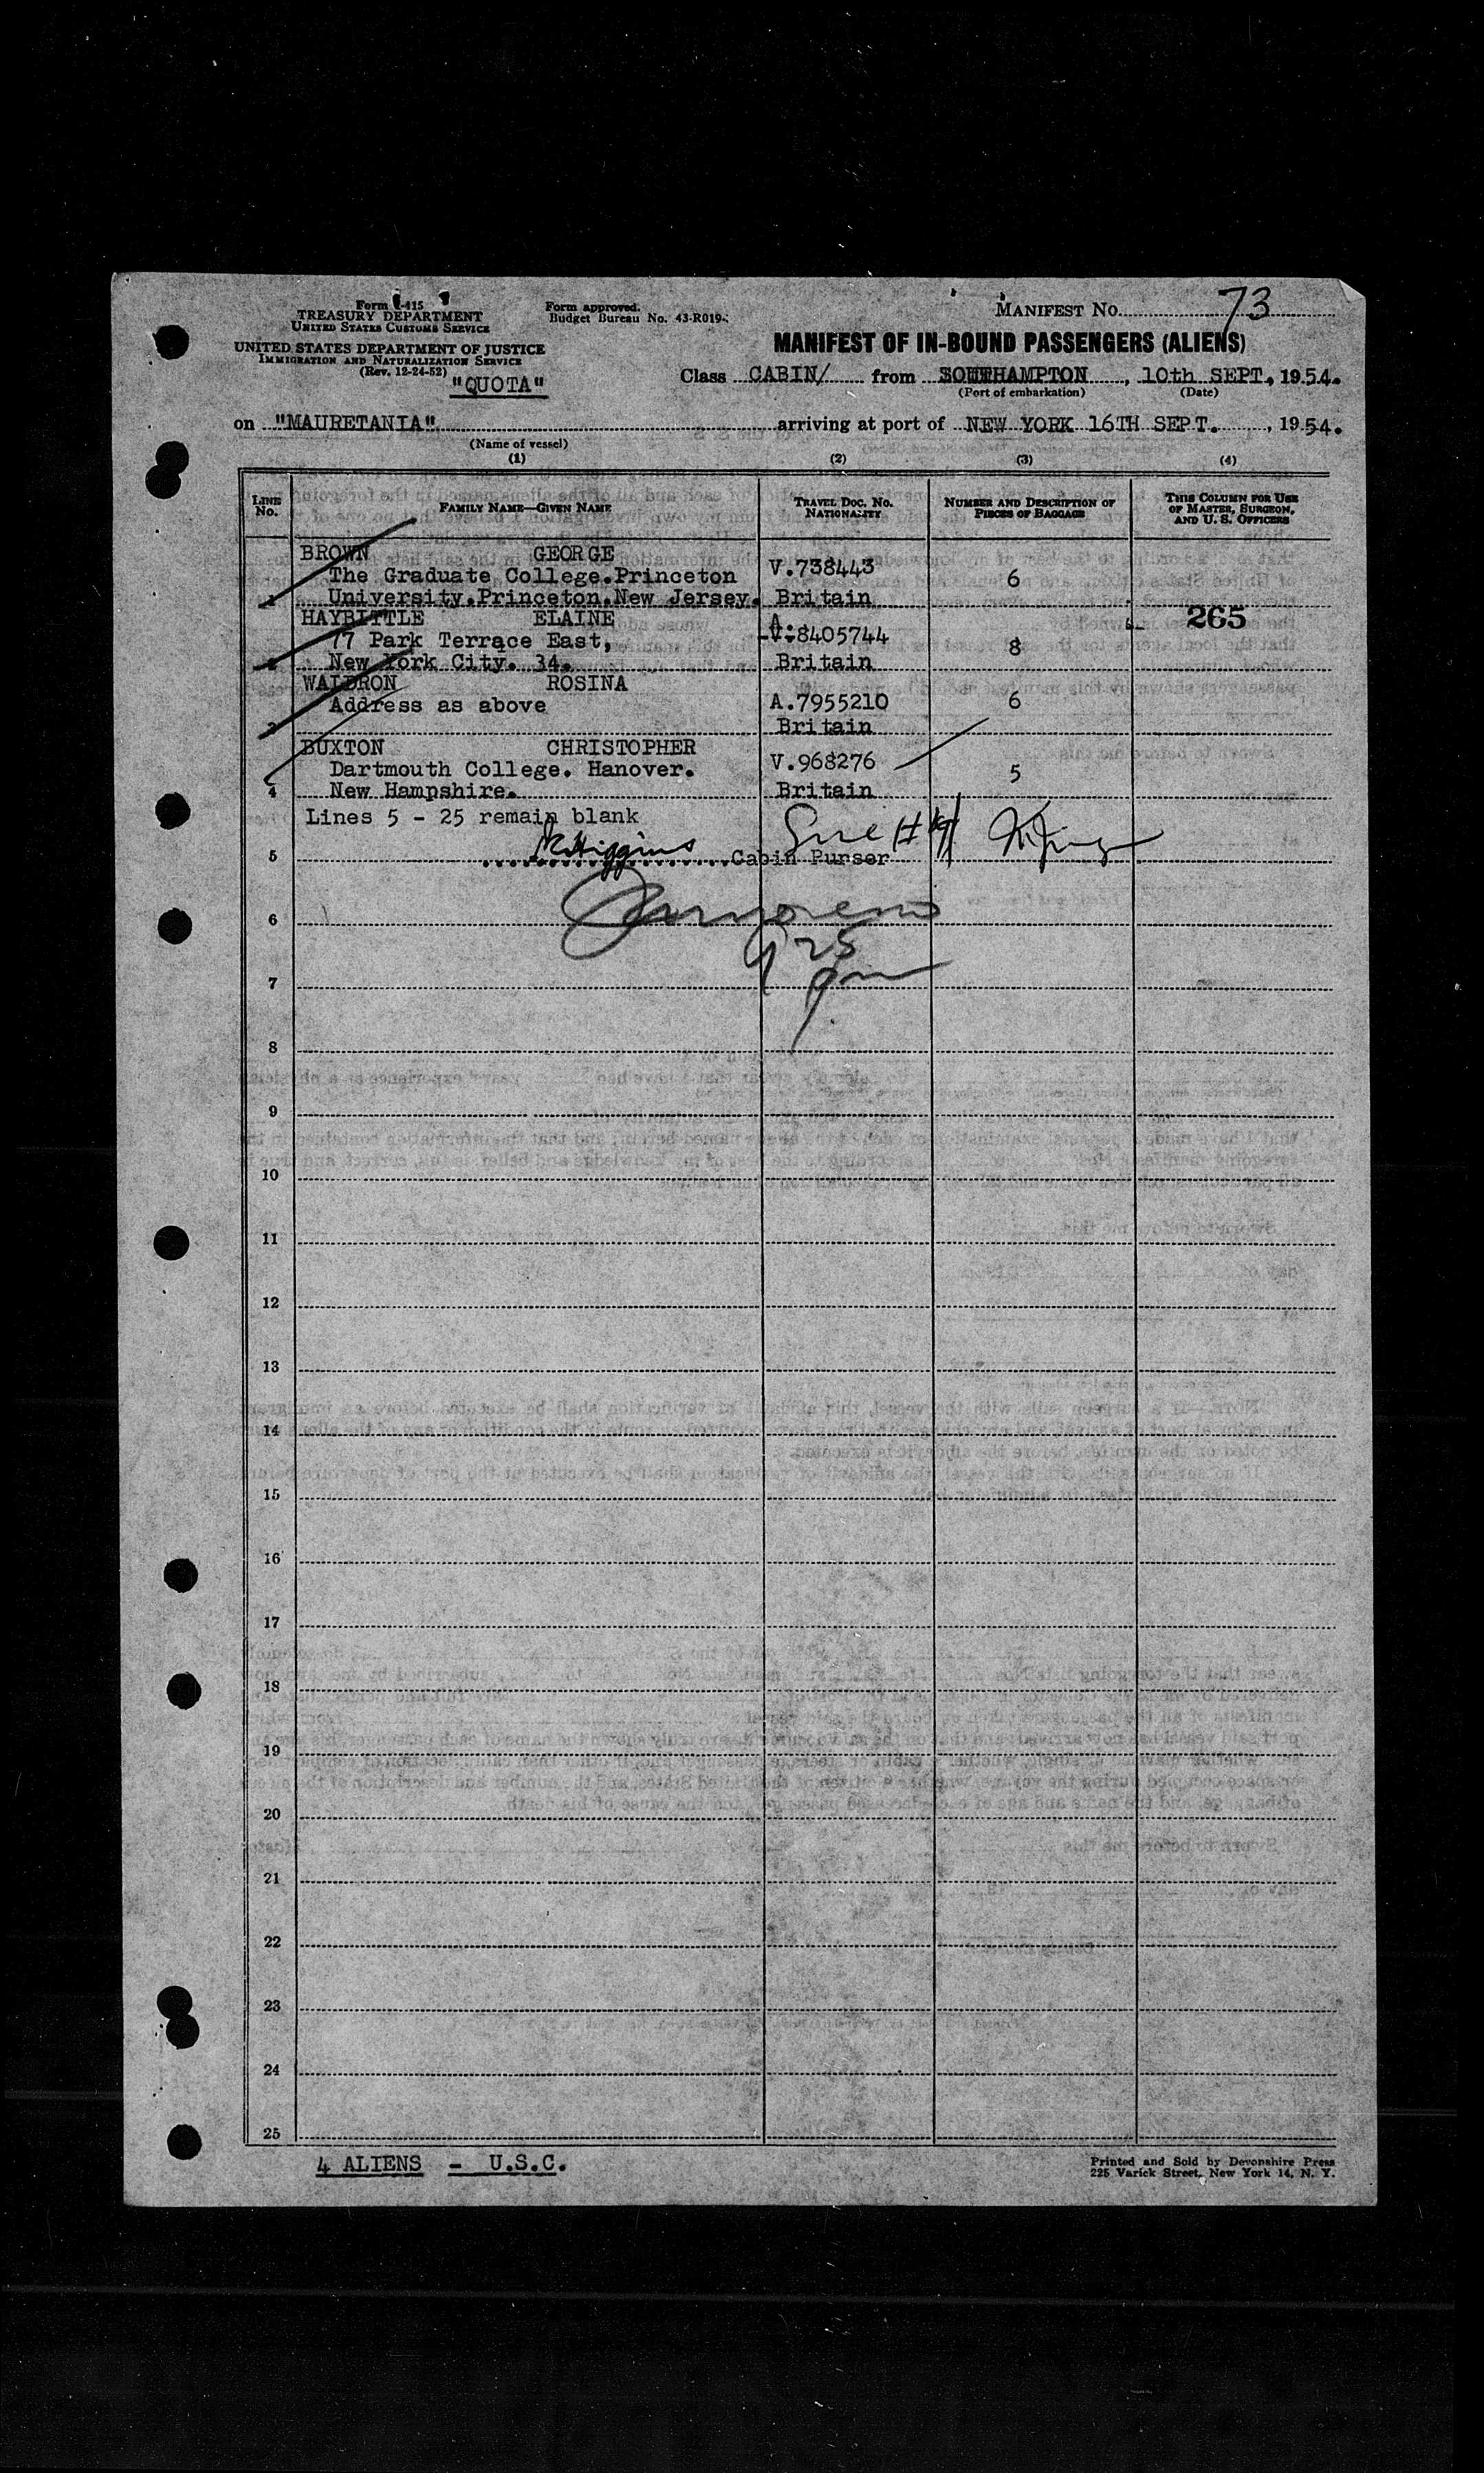 Form I-415
TREASURY DEPARTMENT
UNITED STATES CUSTOMS SERVICE
UNITED STATES DEPARTMENT OF JUSTICE
IMMIGRATION AND NATURALIZATION SERVICE
(Rev. 12-24-52)
"QUOTA"
Form approved.
Budget Bureau No. 43-R019-
MANIFEST NO. 73
MANIFEST OF IN-BOUND PASSENGERS (ALIENS)
Class CABIN/ from SOUTHAMPTON, 10th SEPT, 1954.
(Port of embarkation) (Date)
on "MAURETANIA" arriving at port of NEW YORK 16TH SEPT., 1954.
(Name of vessel)
(1) (2) (3) (4)
LINE NO. FAMILY NAME—GIVEN NAME TRAVEL DOC. NO. NATIONALITY NUMBER AND DESCRIPTION OF PIECES OF BAGGAGE THIS COLUMN FOR USE OF MASTER, SURGEON, AND U. S. OFFICERS
BROWN GEORGE
The Graduate College.Princeton V.738443 6
1 University.Princeton.New Jersey. Britain
HAYBITTLE ELAINE A. 265
77 Park Terrace East, V.8405744 8
2 New York City. 34. Britain
WALDRON ROSINA
Address as above A.7955210 6
3 Britain
BUXTON CHRISTOPHER
Dartmouth College. Hanover. V.968276 5
4 New Hampshire. Britain
Lines 5 - 25 remain blank
5 Higgins Cabin Purser
6
7 pm
8
9
10
11
12
13
14
15
16
17
18
19
20
21
22
23
24
25
4 ALIENS - U.S.C.
Printed and Sold by Devonshire Press
225 Varick Street, New York 14, N. Y.